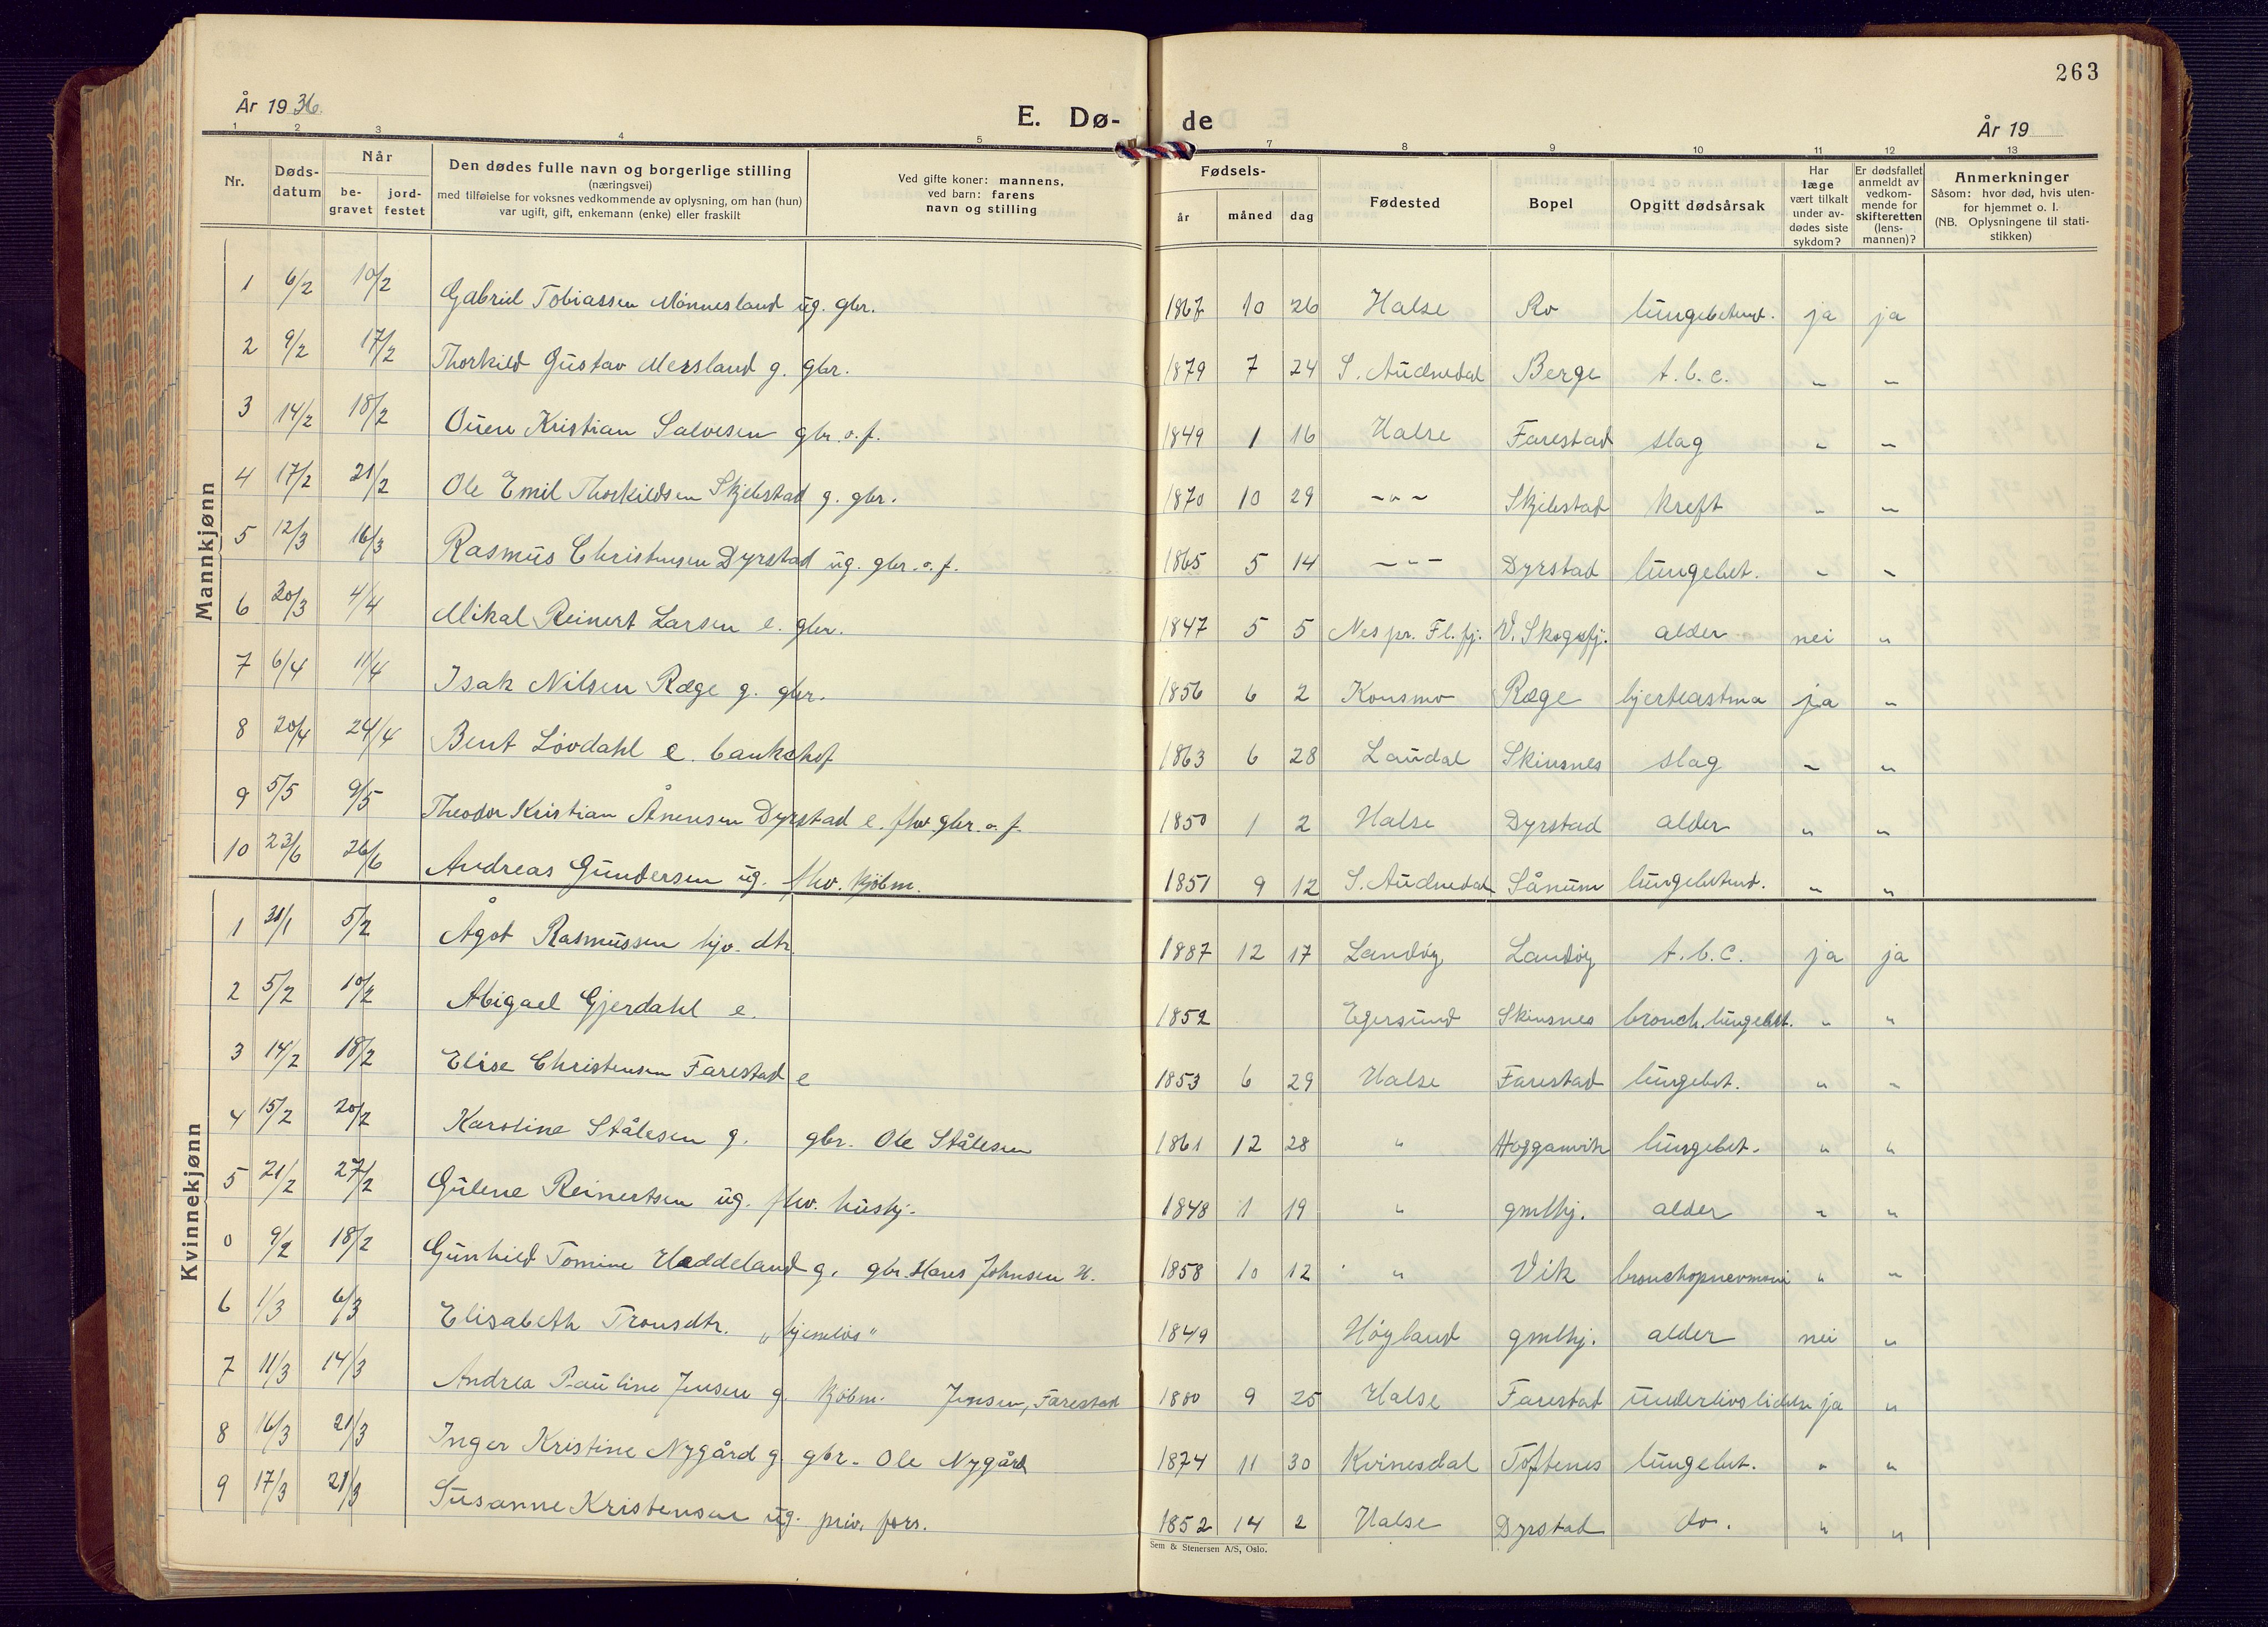 263
År 1936.
E. Dø-
de
År 19
1 2 3 4 5 7 8 9 10 11 12 13
Nr.
Døds-
datum
Når
be-
gravet
jord-
festet
Den dødes fulle navn og borgerlige stilling
(næringsvei)
med tilføielse for voksnes vedkommende av oplysning, om han (hun)
var ugift, gift, enkemann (enke) eller fraskilt
Ved gifte koner: mannens,
ved barn: farens
navn og stilling
Fødsels-
år
måned
dag
Fødested
Bopel
Opgitt dødsårsak
Har
læge
vært tilkalt
under av-
dødes siste
sykdom?
Er dødsfallet
anmeldt av
vedkom-
mende for
skifteretten
(lens-
mannen)?
Anmerkninger
Såsom: hvor død, hvis uten-
for hjemmet o. l.
(NB. Oplysningene til stati-
stikken)
Mannkjønn
1 6/2 10/2 Gabriel Tobiassen Mønnesland ug. gbr. 1867 10 26 Halse Ro lungebetend. ja ja
2 9/2 17/2 Thorkild Gustav Mersland g. gbr. 1879 7 24 S. Audnedal Berge t.b.c. " "
3 14/2 18/2 Ouen Kristian Salvesen gbr. o. f. 1849 1 16 Halse Farestad slag " "
4 17/2 21/2 Ole Emil Thorkildsen Skjebstad g. gbr. 1870 10 29 -"- Skjebstad kreft " "
5 12/3 16/3 Rasmus Christensen Dyrstad ug. gbr. o. f. 1865 5 14 -"- Dyrstad lungebet. " "
6 20/3 4/4 Mikal Reinert Larsen e. gbr. 1847 5 5 Nes pr. Fl.fj. V. Skogsfj. alder nei "
7 6/4 11/4 Isak Nilsen Ræge g. gbr. 1856 6 2 Konsmo Ræge hjerteastma ja "
8 20/4 24/4 Bent Løvdahl e. bankchef 1863 6 28 Laudal Skinsnes slag " "
9 5/5 9/5 Theodor Kristian Ånensen Dyrstad e. fhv. gbr. o. f. 1850 1 2 Halse Dyrstad alder " "
10 23/6 26/6 Andreas Gundersen ug. fhv. kjøbm. 1851 9 12 S. Audnedal Sånum lungebetend. " "
Kvinnekjønn
1 31/1 5/2 Ågot Rasmussen hjv. dtr. 1887 12 17 Landøy Landøy t.b.c. ja ja
2 5/2 10/2 Abigael Gjerdahl e. 1852 Egersund Skinsnes bronch. lungebet. " "
3 14/2 18/2 Elise Christensen Farestad e 1853 6 29 Halse Farestad lungebet. " "
4 15/2 20/2 Karoline Stålesen g. gbr. Ole Stålesen 1861 12 28 " Hogganvik lungebet. " "
5 21/2 27/2 Gulene Reinertsen ug. fhv. hushj. 1848 1 19 " gmlhj. alder " "
0 9/2 18/2 Gunhild Tomine Haddeland g. gbr. Hans Johnsen H. 1858 10 12 " Vik bronchopnevmoni " "
6 1/3 6/3 Elisabeth Tronsdtr. "hjemløs" 1849 Høyland gmlhj. alder nei "
7 11/3 14/3 Andrea Pauline Jensen g. kjøbm. Jensen, Farestad 1880 9 25 Halse Farestad underlivslidelse ja "
8 16/3 21/3 Inger Kristine Nygård g gbr. Ole Nygård 1874 11 30 Kvinesdal Toftenes lungebet. " "
9 17/3 21/3 Susanne Kristensen ug. priv. fors. 1852 14 2 Halse Dyrstad do. " "
Sem & Stenersen A/S, Oslo.